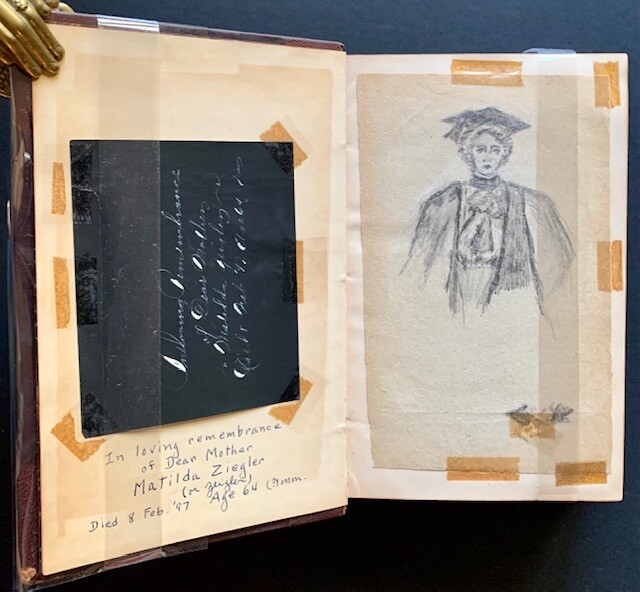 In Loving Remembrance
of Dear Mother
Matilda
Died 8 Feb
In loving remembrance
of Dear Mother
Matilda Ziegler
(or Zeigler)
Died 8 Feb. '97 Age 64 (?) mon.